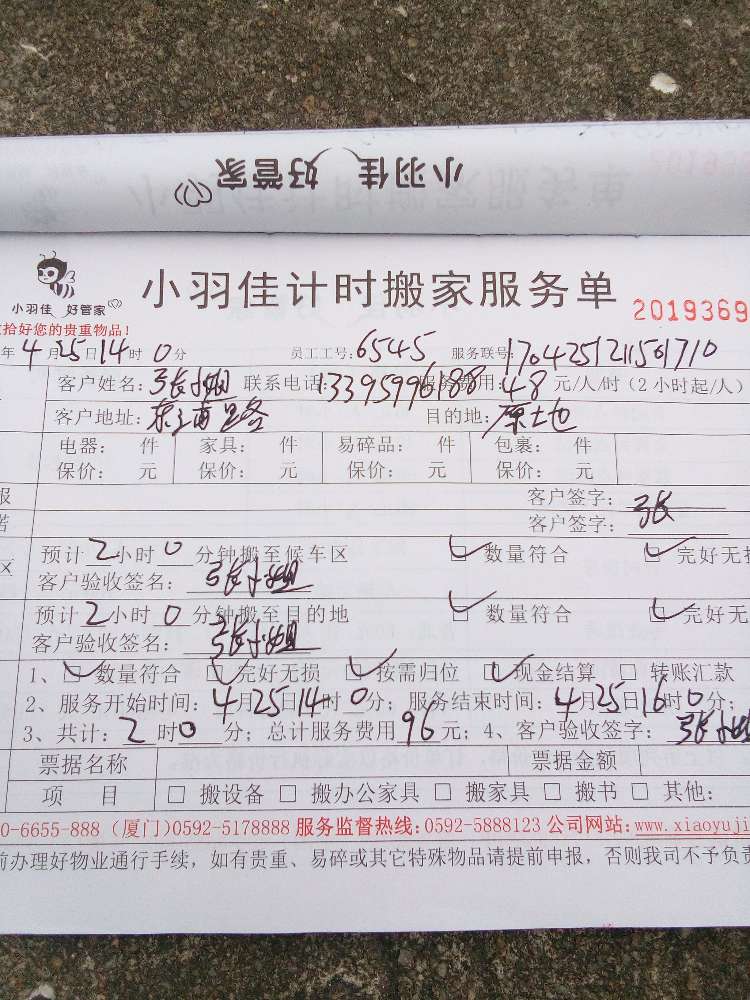 小羽佳 好管家
小羽佳 好管家
小羽佳计时搬家服务单 2019369
拾好您的贵重物品！
年4月25日14时0分 员工工号：6545 服务联号：1704251211561710
客户姓名：张小姐 联系电话：13395996188 服务费用：48元/人/时（2小时起/人）
客户地址： 目的地：原土地
电器： 件 家具： 件 易碎品： 件 包裹： 件
保价： 元 保价： 元 保价： 元 保价： 元
报 客户签字：
诺 客户签字：张
预计2小时0分钟搬至候车区 ☑ 数量符合 ☑ 完好无损
区 客户验收签名：张小姐
预计2小时0分钟搬至目的地 ☑ 数量符合 ☑ 完好无
客户验收签名：张小姐
1、☑ 数量符合 ☑ 完好无损 ☑ 按需归位 ☑ 现金结算 □ 转账汇款
2、服务开始时间：4月25日14时0分；服务结束时间：4月25日16时0分；
3、共计：2时0分；总计服务费用96元；4、客户验收签字：张小姐
票据名称 票据金额
项 目 □ 搬设备 □ 搬办公家具 □ 搬家具 □ 搬书 □ 其他：
0-6655-888（厦门）0592-5178888 服务监督热线：0592-5888123 公司网站：www.xiaoyuji
前办理好物业通行手续，如有贵重、易碎或其它特殊物品请提前申报，否则我司不予负责